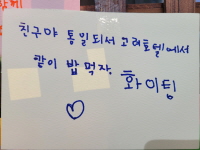 친구야 통일되서 고려호텔에서
같이 밥 먹자.
화이팅